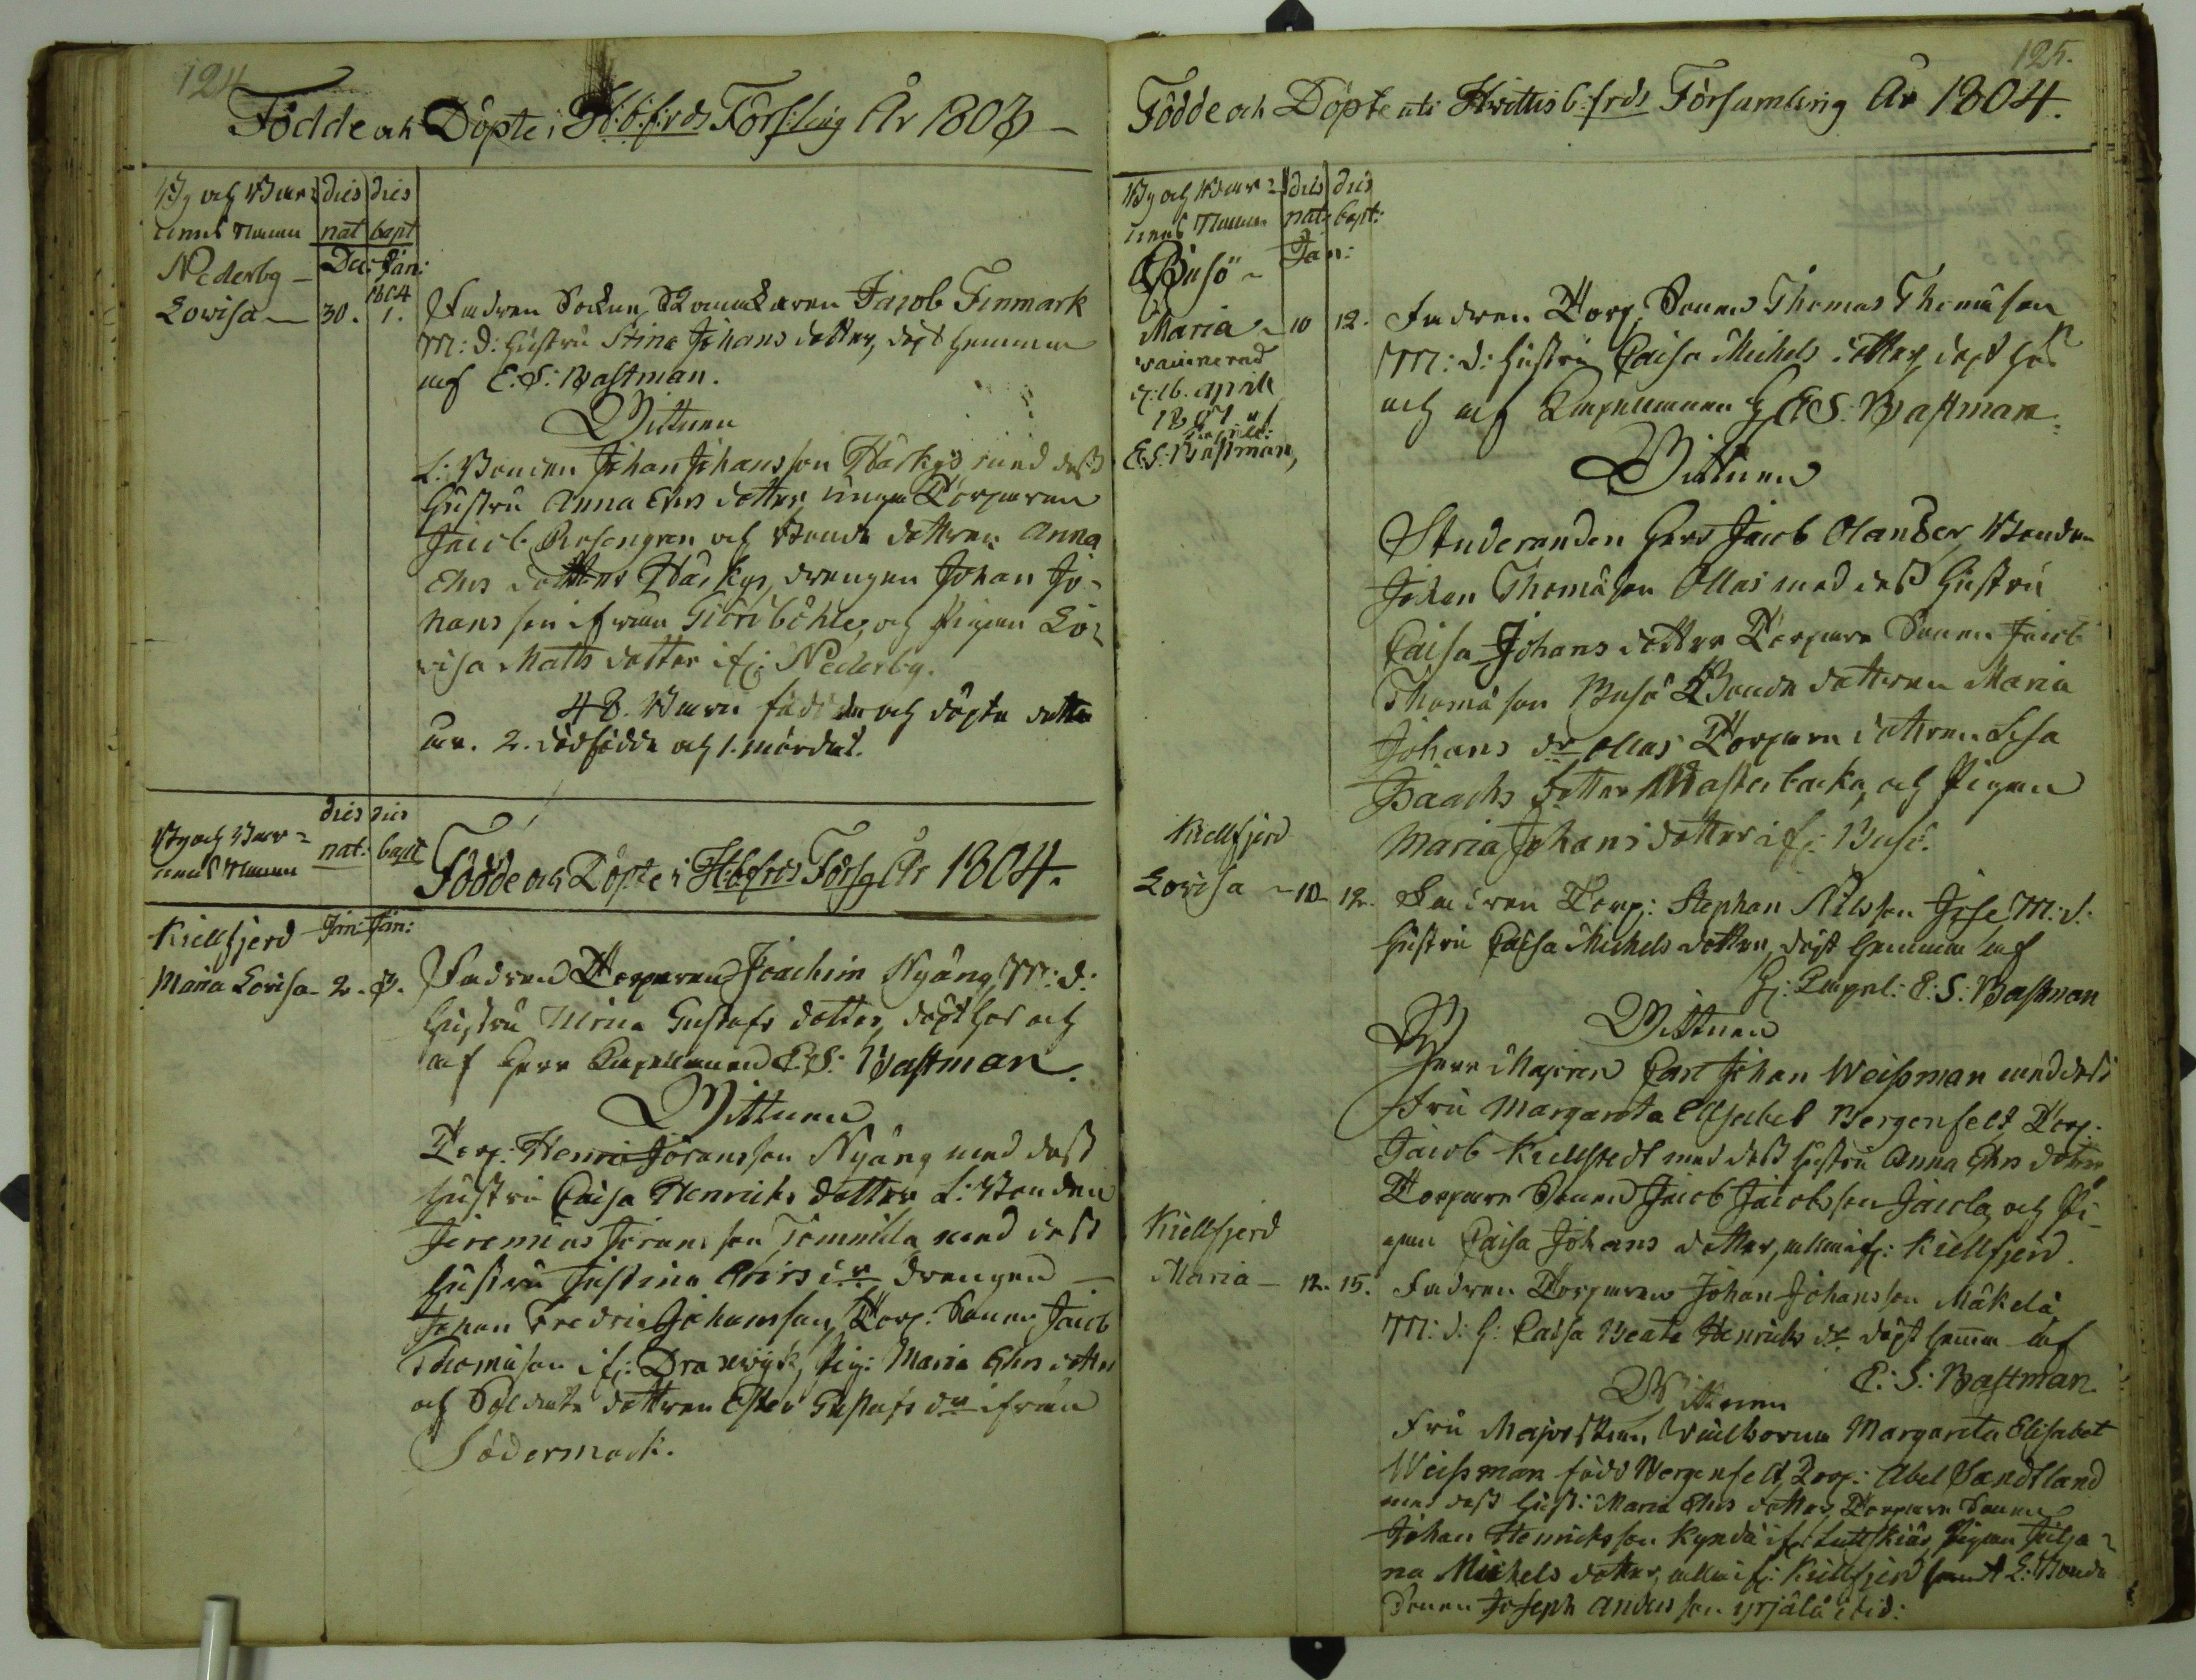 124
Födde och Döpte i H:b:f:rds Förs:ling År 1803
By och Bar=
nens Namn
dies nat
dies bapt
Nederby
Dec: Jan: 1804
Lovisa 30. 1.
Fadren Sockne Skomakaren Jacob Finmark
M: d: Hustru Stina Johans dotter, döpt hemma
af E: S: Bastman.
Vittnen
L: Bonden Johan Johansson Härkys med dess
Hustru Anna Ehrs dotter, unga Torparen
Jacob Rosengren och Bonde dottren Anna
Ehrs dotter Härkys, drengen Johan Jo-
hansson ifrån Giöriböhle, och Pigan Lo-
visa Matts dotter if: Nederby.
48. Barn födde och döpte detta
år. 2. dödfödde och 1. mördat.
By och Bar=
nens Namn
dies nat:
dies bapt
Födde och Döpte i H:b:frds Förs:g År 1804.
Kiellfjerd Jan: Jan:
Maria Lovisa 2. 3.
Fadren Torparen Joachim Nyäng, M: d:
Hustru Ulrica Gustafs dotter, döpt hos och
af Herr Capellanen E: S: Bastman.
Vittnen
Torp: Henric Joransson Nyäng med dess
Hustru Caisa Henrichs dotter L: Bonden
Jeremias Joransson Tommila med dess
Hustru Justina Ehrs dr drengen
Johan Fredric Johansson, Torp: Sonen Jacob
Thomasson if: Draxwyk, Pig: Maria Ehrs dotter
och Soldate dottren Ester Gustafs dr ifrån
Södermark.
125.
Födde och Döpte uti Hvittis b:frds Församling År 1804.
By och Barn=
nens Namn
dies nat:
dies bapt:
Busö
Jan:
Maria 10 12.
vaccinerad
d: 16. april
1807 af
E: S: Bastman,
Fadren Torp: Sonen Thomas Thomasson
M: d: Hustru Caisa Michels dotter, döpt hos
och af Capellanen H E S: Bastman.
Vittnen
Studeranden Herr Jacob Olander, Bonden
Johan Thomasson Ollas med dess Hustru
Caisa Johans dotter Torpare Sonen Jacob
Thomasson Busö Bonde dottren Maria
Johans dr Ollas Torpare dottren Lisa
Isaachs dotter Masterbacka, och Pigan
Maria Johans dotter if: Busö.
Kiellfjerd
Lovisa 10 12.
Fadren Torp: Stephan Nilsson M: d:
Hustru Caisa Michels dotter, döpt hemma af
H: Capel: E: S: Bastman
Vittnen
Herr Majoren Carl Johan Weissman med dess
Fru Margareta Elisabet Bergenfelt Torp:
Jacob Kiellstedt med dess Hustru Anna Ehrs dotter
Torpare Sonen Jacob Jacobsson Jacola, och Pi-
gan Caisa Johans dotter, alla if: Kiellfjerd.
Kiellfjerd
Maria 12. 15.
Fadren Torparen Johan Johansson Mäkelä
M: d: H: Caisa Beata Henrichs dr döpt hemma af
E: S: Bastman.
Vittnen
Fru Majorskan Välborna Margareta Elisabet
Weissman född Bergenfelt, Torp: Abel Sandtland
med dess Hust: Maria Ehrs dotter, Torpare Sonen
Johan Henricksson Kynda if: Luttskiär, Pigan Julja-
na Michels dotter, alla if: Kiellfjerd samt L: Bonde
Sonen Joseph Andersson yrjälä ibid: